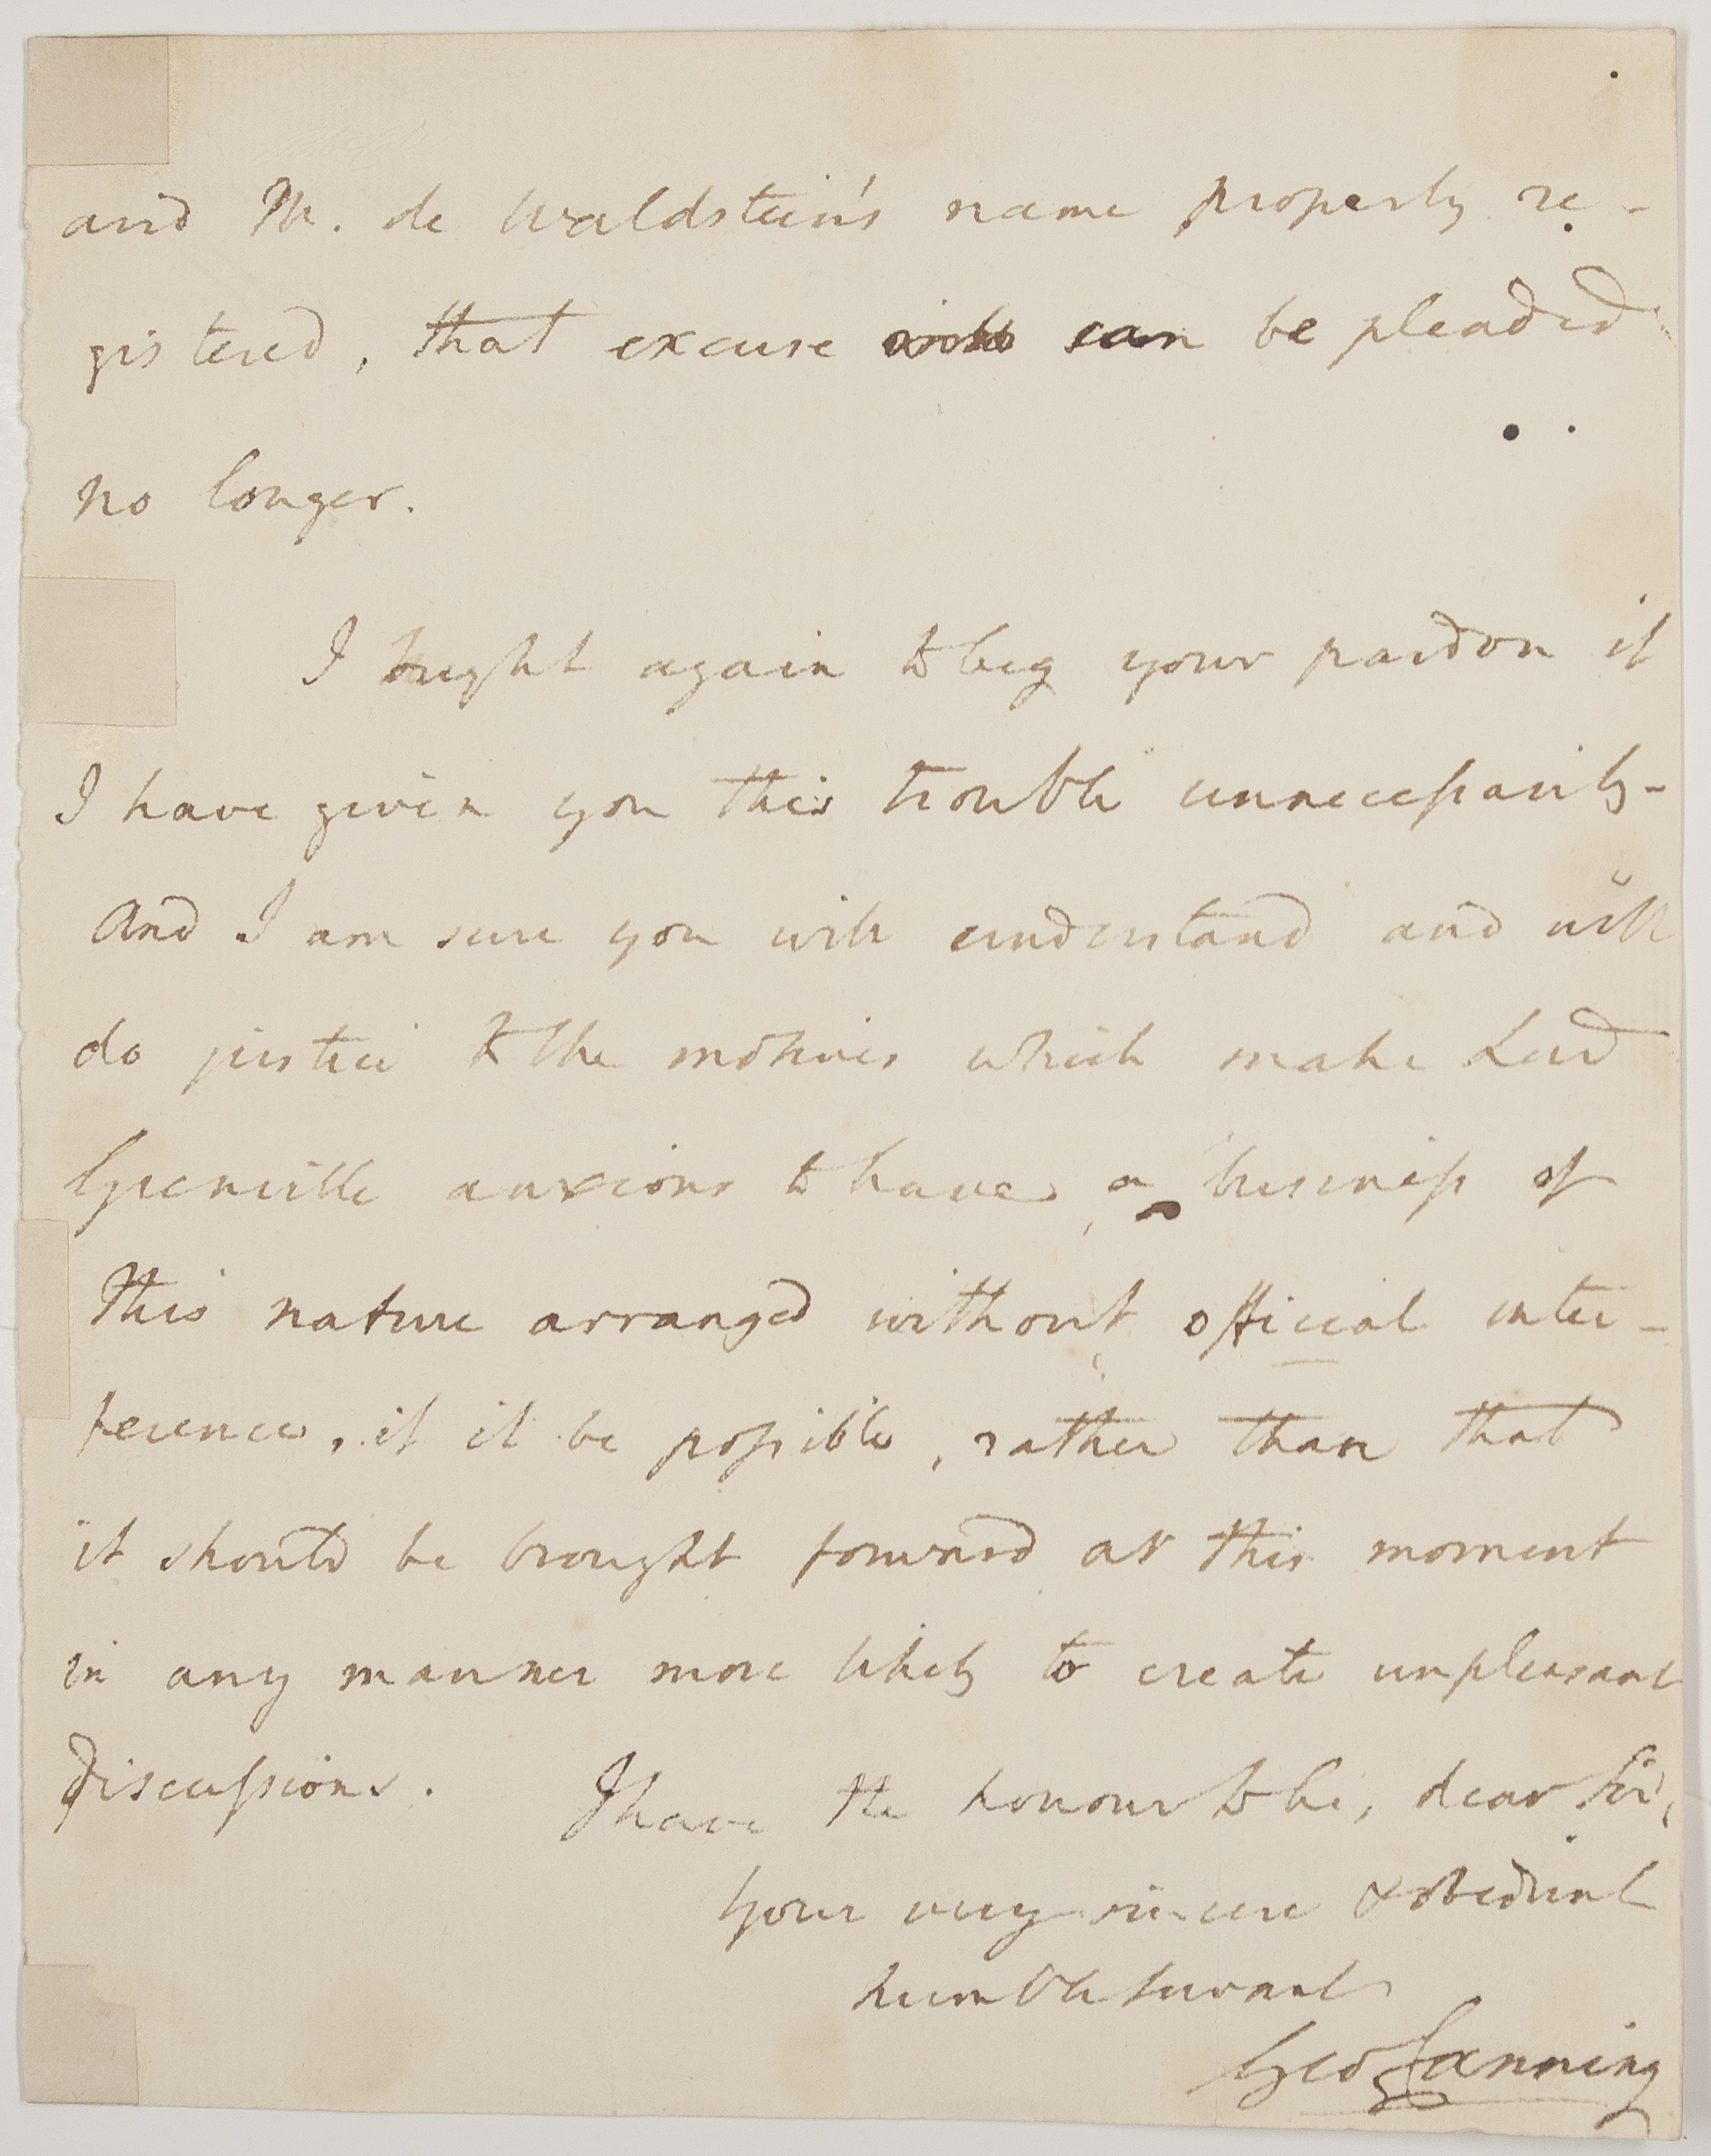 and M. de Waldstein's name properly re-
gistered, that excuse can be pleaded
no longer.
I ought again to beg your pardon if
I have given you this trouble unnecessarily-
And I am sure you will understand and will
do justice to the motives which make Lord
Grenville anxious to have a business of
this nature arranged without official inter-
ference, if it be possible, rather than that
it should be brought forward at this moment
in any manner more likely to create unpleasant
discussions. I have the honour to be, dear Sir,
Your very sincere & obedient
humble servant
Geo Canning